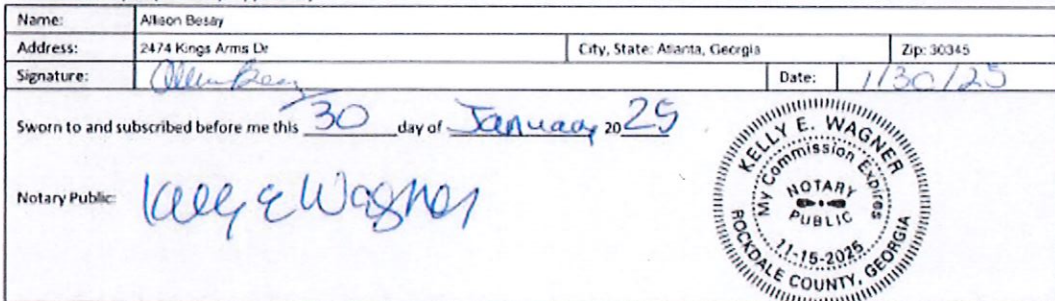 Name: Allison Besay
Address: 2474 Kings Arms Dr City, State: Atlanta, Georgia Zip: 30345
Signature: Date: 1/30/25
Sworn to and subscribed before me this 30 day of January 20 25
Notary Public: Kelly E Wagner
KELLY E. WAGNER
My Commission Expires
NOTARY
PUBLIC
11-15-2025
ROCKDALE COUNTY, GEORGIA